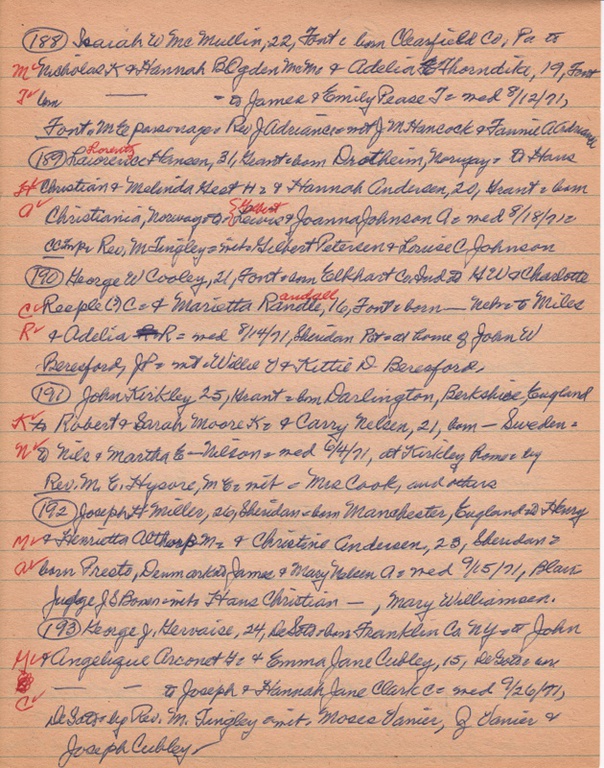 (188) Isaiah W Mc Mullin, 22, Font = born Clearfield Co, Pa to
Mc✓ Nicholas K & Hannah B Ogden McM= & Adelia E Thorndike, 19, Font
T✓ born — - to James & Emily Pease T= med 8/12/71,
Font= ME parsonage= Rev J Adrians= wit J M Hancock & Fannie A Adrians
(189) Laurence Lorentz Hansen, 31, Grant= born Drotheim, Norway= to Hans
H✓ Christian & Melinda Gest H= & Hannah Andersen, 20, Grant= born
A✓ Christiania, Norway= to Lewis Gilbert & Joanna Johnson A= med 8/18/71=
Rev. M Tingley= wit= Gilbert Petersen & Louise C Johnson
(190) George W Cooley, 21, Font= born Elkhart Co. Ind to G W & Charlotte
C✓ Reeple (?) C= & Marietta Randle, andall 16, Font= born — Neb= to Miles
R✓ & Adelia R= med 8/14/71, Sheridan Pct= at home of John W
Beresford, JP= wit= Willie & Kittie D Beresford.
(191) John Kirkley, 25, Grant= born Darlington, Berkshire, England
K✓ to Robert & Sarah Moore K= & Carry Nelsen, 21, born — Sweden=
N✓ to Nils & Martha E — Nilson= med 6/4/71, at Kirkley home= by
Rev. M. E. Hysore, ME= wit= Mrs Cook, and others
(192) Joseph H Miller, 26, Sheridan= born Manchester, England to Henry
M✓ & Henrietta Althorp M= & Christine Andersen, 23, Sheridan=
A✓ born Presto, Denmark= to James & Mary Nelsen A= med 9/15/71, Blair
Judge J S Bowen= wit= Hans Christian —, Mary Williamsen.
(193) George J. Gervaise, 24, DeSoto= born Franklin Co NY= to John
M✓ & Angelique Arconet G= & Emma Jane Cubley, 15, DeSoto= born
C✓ — — to Joseph & Hannah Jane Clark C= med 9/26/71,
DeSoto= by Rev. M. Tingley= wit. Moses Vanier, J Vanier &
Joseph Cubley✓